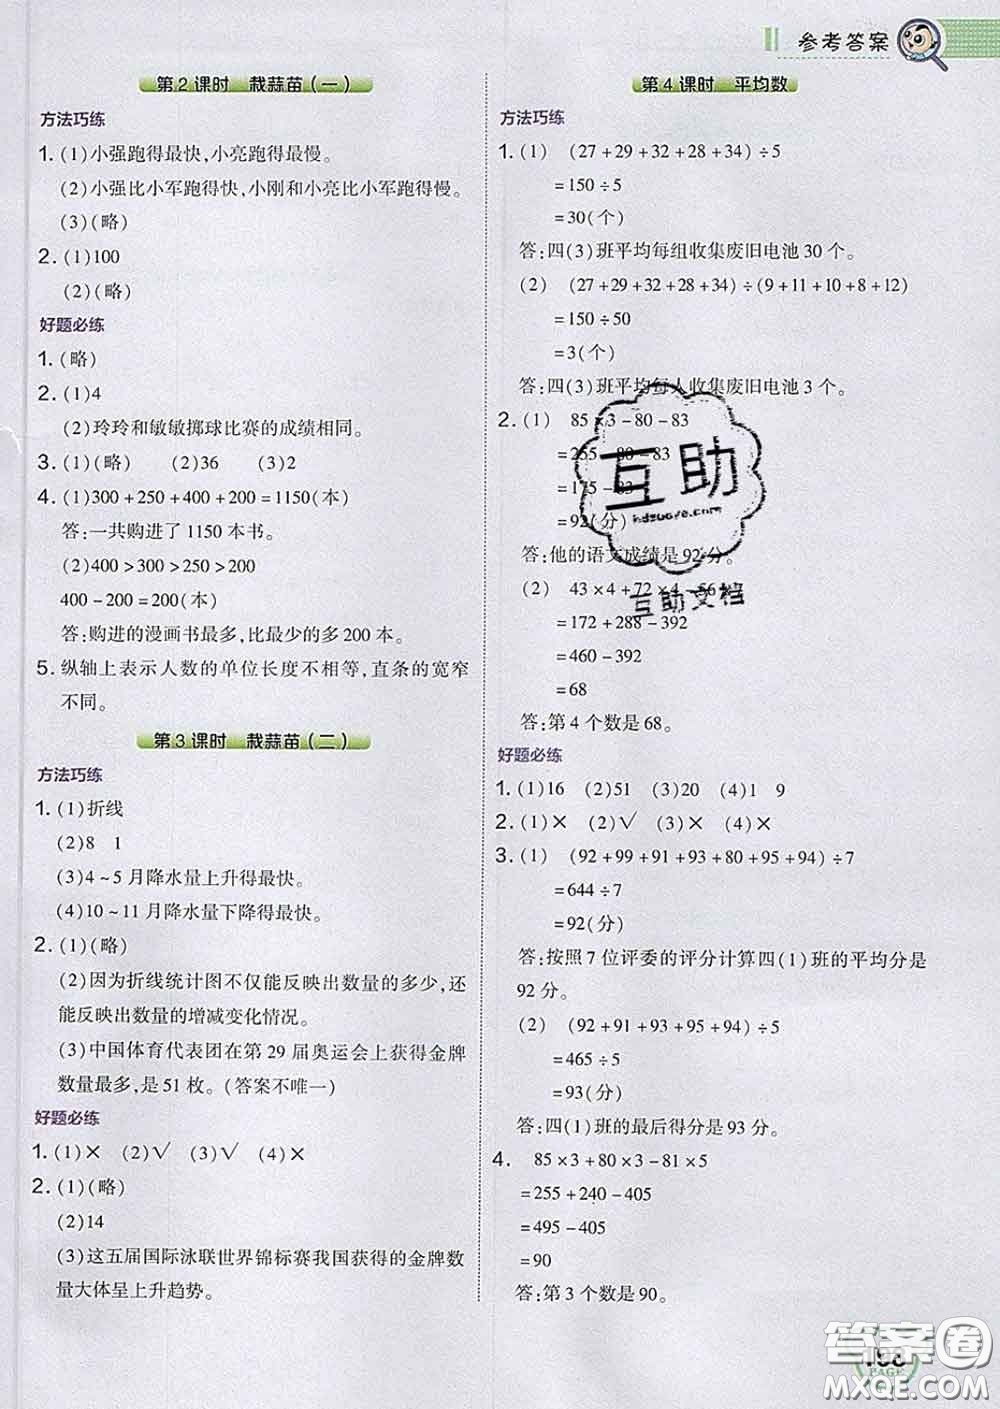 参考答案
第2课时 栽蒜苗(一)
方法巧练
1. (1)小强跑得最快,小亮跑得最慢。
(2)小强比小军跑得快,小刚和小亮比小军跑得慢。
(3)(略)
2. (1)100
(2)(略)
好题必练
1. (略)
2. (1)4
(2)玲玲和敏敏掷球比赛的成绩相同。
3. (1)(略) (2)36 (3)2
4. (1)300+250+400+200=1150(本)
答:一共购进了1150本书。
(2)400>300>250>200
400-200=200(本)
答:购进的漫画书最多,比最少的多200本。
5. 纵轴上表示人数的单位长度不相等,直条的宽窄
不同。
第3课时 栽蒜苗(二)
方法巧练
1. (1)折线
(2)8 1
(3)4~5月降水量上升得最快。
(4)10~11月降水量下降得最快。
2. (1)(略)
(2)因为折线统计图不仅能反映出数量的多少,还
能反映出数量的增减变化情况。
(3)中国体育代表团在第29届奥运会上获得金牌
数量最多,是51枚。(答案不唯一)
好题必练
1. (1)× (2)√ (3)√ (4)×
2. (1)(略)
(2)14
(3)这五届国际泳联世界锦标赛我国获得的金牌数
量大体呈上升趋势。
第4课时 平均数
方法巧练
1. (1) (27+29+32+28+34)÷5
=150÷5
=30(个)
答:四(3)班平均每组收集废旧电池30个。
(2) (27+29+32+28+34)÷(9+11+10+8+12)
=150÷50
=3(个)
答:四(3)班平均每人收集废旧电池3个。
2. (1) 85×3-80-83
=255-80-83
=175-83
=92(分)
答:他的语文成绩是92分。
(2) 43×4+72×4-56×
=172+288-392
=460-392
=68
答:第4个数是68。
好题必练
1. (1)16 (2)51 (3)20 (4)1 9
2. (1)× (2)√ (3)× (4)×
3. (1) (92+99+91+93+80+95+94)÷7
=644÷7
=92(分)
答:按照7位评委的评分计算四(1)班的平均分是
92分。
(2) (92+91+93+95+94)÷5
=465÷5
=93(分)
答:四(1)班的最后得分是93分。
4. 85×3+80×3-81×5
=255+240-405
=495-405
=90
答:第3个数是90。
互助
hdzuoye.com
互助文档
PAGE
答案圈
MXQE.COM